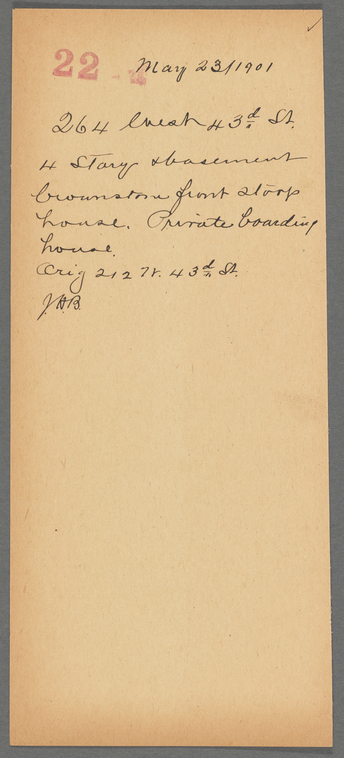 22 May 23/1901
264 West 43d St.
4 Story & basement
brownstone front stoop
house. Private boarding
house.
Orig 212 W. 43d St.
J.H.B.